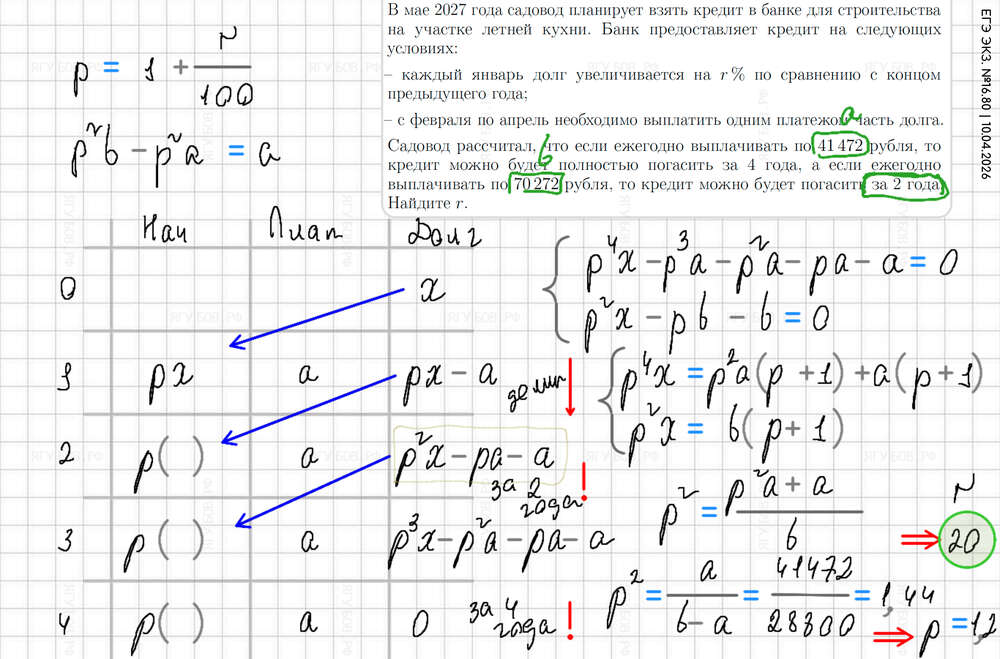 В мае 2027 года садовод планирует взять кредит в банке для строительства
на участке летней кухни. Банк предоставляет кредит на следующих
условиях:
– каждый январь долг увеличивается на r % по сравнению с концом
предыдущего года;
– с февраля по апрель необходимо выплатить одним платежом часть долга.
Садовод рассчитал, что если ежегодно выплачивать по 41 472 рубля, то
кредит можно будет полностью погасить за 4 года, а если ежегодно
выплачивать по 70 272 рубля, то кредит можно будет погасить за 2 года.
Найдите r.
a
b
ЕГЭ ЭКЗ. №16.80 | 10.04.2026
p = 1 + r/100
p²b − p²a = a
Нач Плат Долг
0 x
1 px a px − a
2 p( ) a p²x − pa − a
за 2 года!
3 p( ) a p³x − p²a − pa − a
4 p( ) a 0 за 4 года!
p⁴x − p³a − p²a − pa − a = 0
p²x − pb − b = 0
делим
p⁴x = p²a(p + 1) + a(p + 1)
p²x = b(p + 1)
p² = (p²a + a)/b
r
⇒ 20
p² = a/(b − a) = 41472/28800 = 1,44
⇒ p = 1,2
ЯГУБОВ.РФ